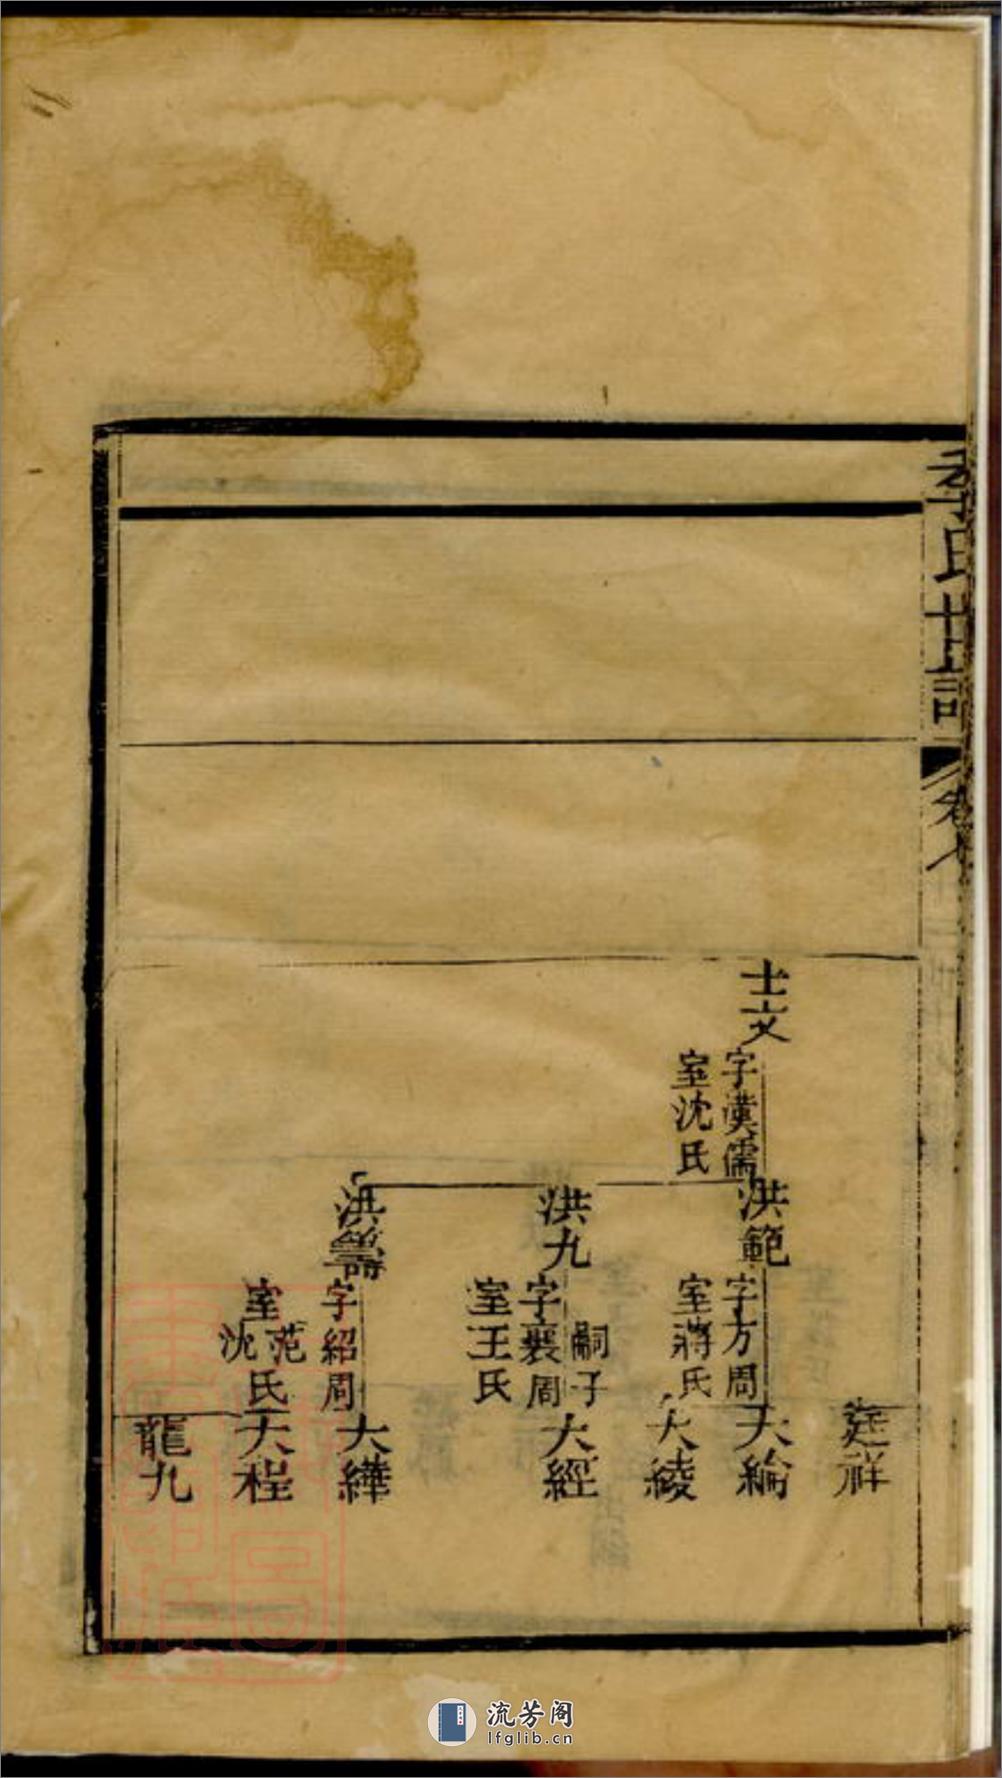 氏世譜
卷七
士文
字漢儒
室沈氏
洪範
字方周
室蔣氏
洪九
嗣子
字襄周
室王氏
洪籌
字紹周
室范沈氏
廷祥
大綸
大綾
大經
大繂
大程
龍九
流芳阁
lfglib.cn